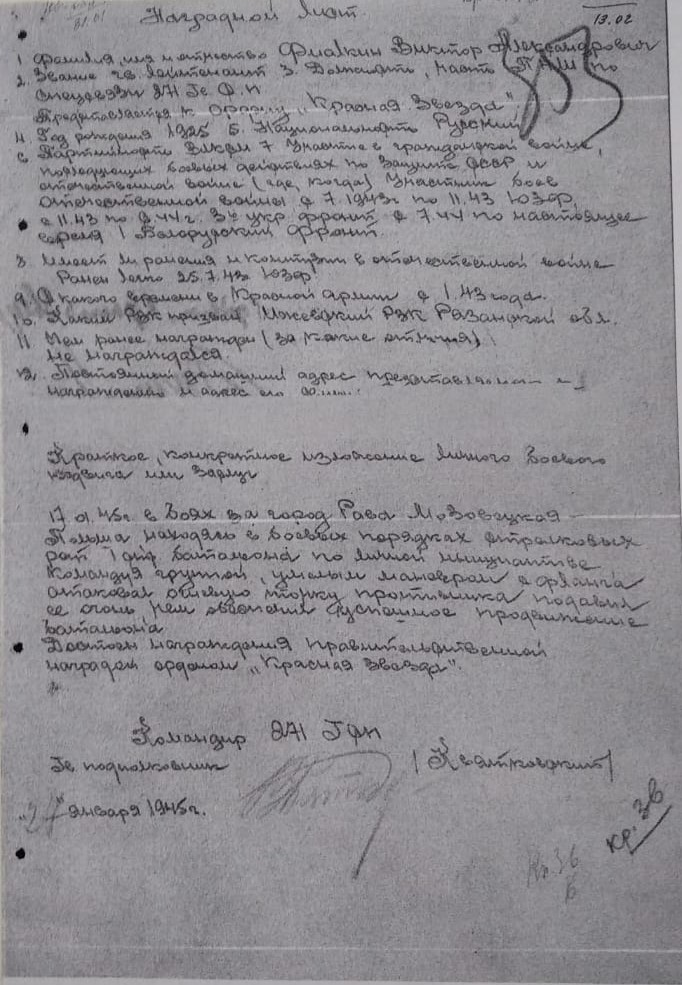 Наградной лист.
13.02
1 Фамилия, имя и отчество Фиалкин Виктор Александрович
2. Звание гв. лейтенант 3. Должность, часть по
271 Гв.
Представляется к ордену „Красная Звезда"
4. Год рождения 1925 5. Национальность Русский
6 Партийность ВЛКСМ 7 Участие в гражданской войне,
последующих боевых действиях по защите СССР и
отечественной войне (где, когда) Участник боев
отечественной войны с 7.1943г по 11.43 ЮЗФр,
с 11.43 по 44г. 3й укр фронт с 7.44 по настоящее
время 1 Белорусский фронт.
8. Имеет ли ранения и контузии в отечественной войне
Ранен легко 25.7.43г ЮЗФр
9. С какого времени в Красной армии с 1.43 года.
10. Каким РВК призван РВК Рязанской обл.
11 Чем ранее награжден (за какие отличия)
не награждался.
12. Постоянный домашний адрес
награждению и адрес его
Краткое, конкретное изложение личного боевого
подвига или заслуг
17.01.45г. в боях за город Рава Мазовецкая
Польша находясь в боевых порядках стрелковых
рот 1 батальона по личной инициативе
командуя группой, умелым маневром с фланга
атаковал огневую точку противника подавил
ее огонь чем обеспечил успешное продвижение
батальона
Достоен награждения правительственной
наградой орденом „Красная Звезда".
Командир 271 ГСП
Гв. подполковник /Квятковский/
января 1945г.
кр. Зв
Кр. Зв